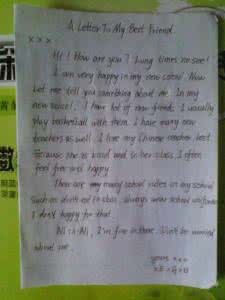 A Letter To My Best Friend
x x x
Hi! How are you? Long times no see!
I am very happy in my new school. Now
Let me tell you something about me. In my
new school, I have lot of new friends. I usually
play basketball with them. I have many new
teachers as well. I love my Chinese teacher best.
Because she is kind and in her class, I often
feel free and happy
There are many school rules in my school
Such as don't eat in class, always wear school uniform
I don't happy for that
All in All, I'm fine in there. Don't be worried
about me.
yours x x x
数